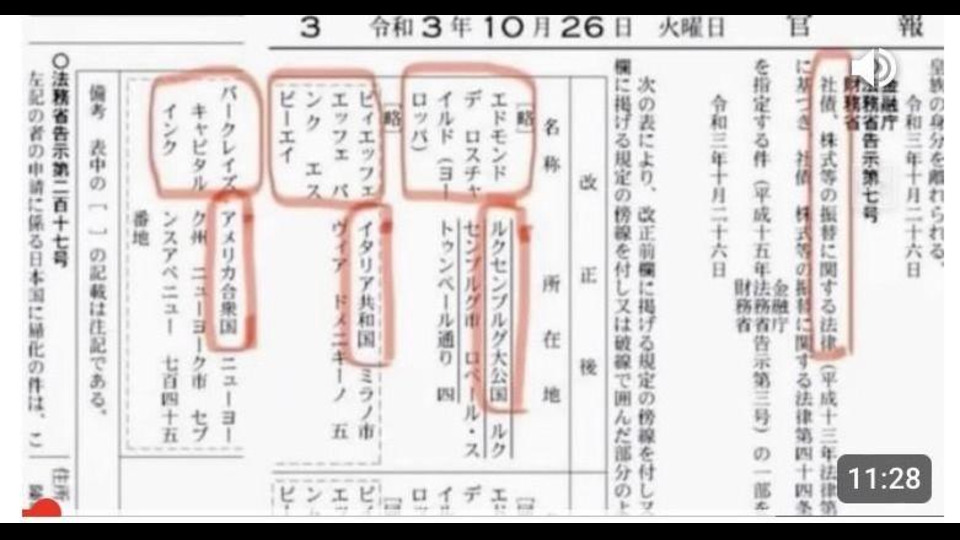 3 令和3年10月26日 火曜日 官報
皇族の身分を離れられる。
令和三年十月二十六日
金融庁
法務省告示第七号
財務省
社債、株式等の振替に関する法律(平成十三年法律第
に基づき、社債、株式等の振替に関する法律第四十四条
を指定する件(平成十五年
金融庁
法務省告示第三号)の一部を
財務省
令和三年十月二十六日
次の表により、改正前欄に掲げる規定の傍線を付し又
欄に掲げる規定の傍線を付し又は破線で囲んだ部分の
改正後
名称
所在地
[略]
エドモンド
デ ロスチャ
イルド(ヨー
ロッパ)
ルクセンブルグ大公国 ルク
センブルグ市 ロベール・ス
トゥンペール通り 四
[略]
ビィエッフェ
エッフェ バ
ンク エス
ピーエイ
イタリア共和国 ミラノ市
ヴィア ドメニキーノ 五
バークレイズ
キャピタル
インク
アメリカ合衆国 ニューヨー
ク州 ニューヨーク市 セブ
ンスアベニュー 七百四十五
番地
備考 表中の[ ]の記載は注記である。
[略]
エド
デ
イル
ロッ
ビィ
エッ
ンク
ピー
〇法務省告示第二百十七号
左記の者の申請に係る日本国に帰化の件は、こ
住所
11:28